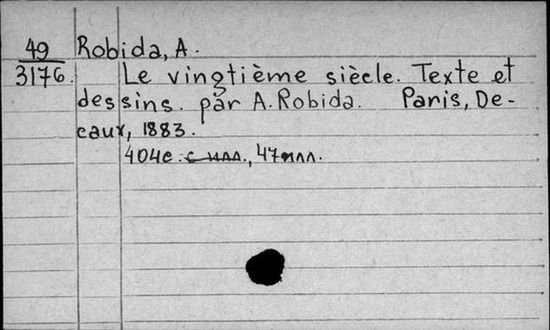 49
3176.
Robida, A.
Le vingtième siècle. Texte et
dessins. par A. Robida. Paris, De-
caux, 1883.
404с. с илл., 47илл.